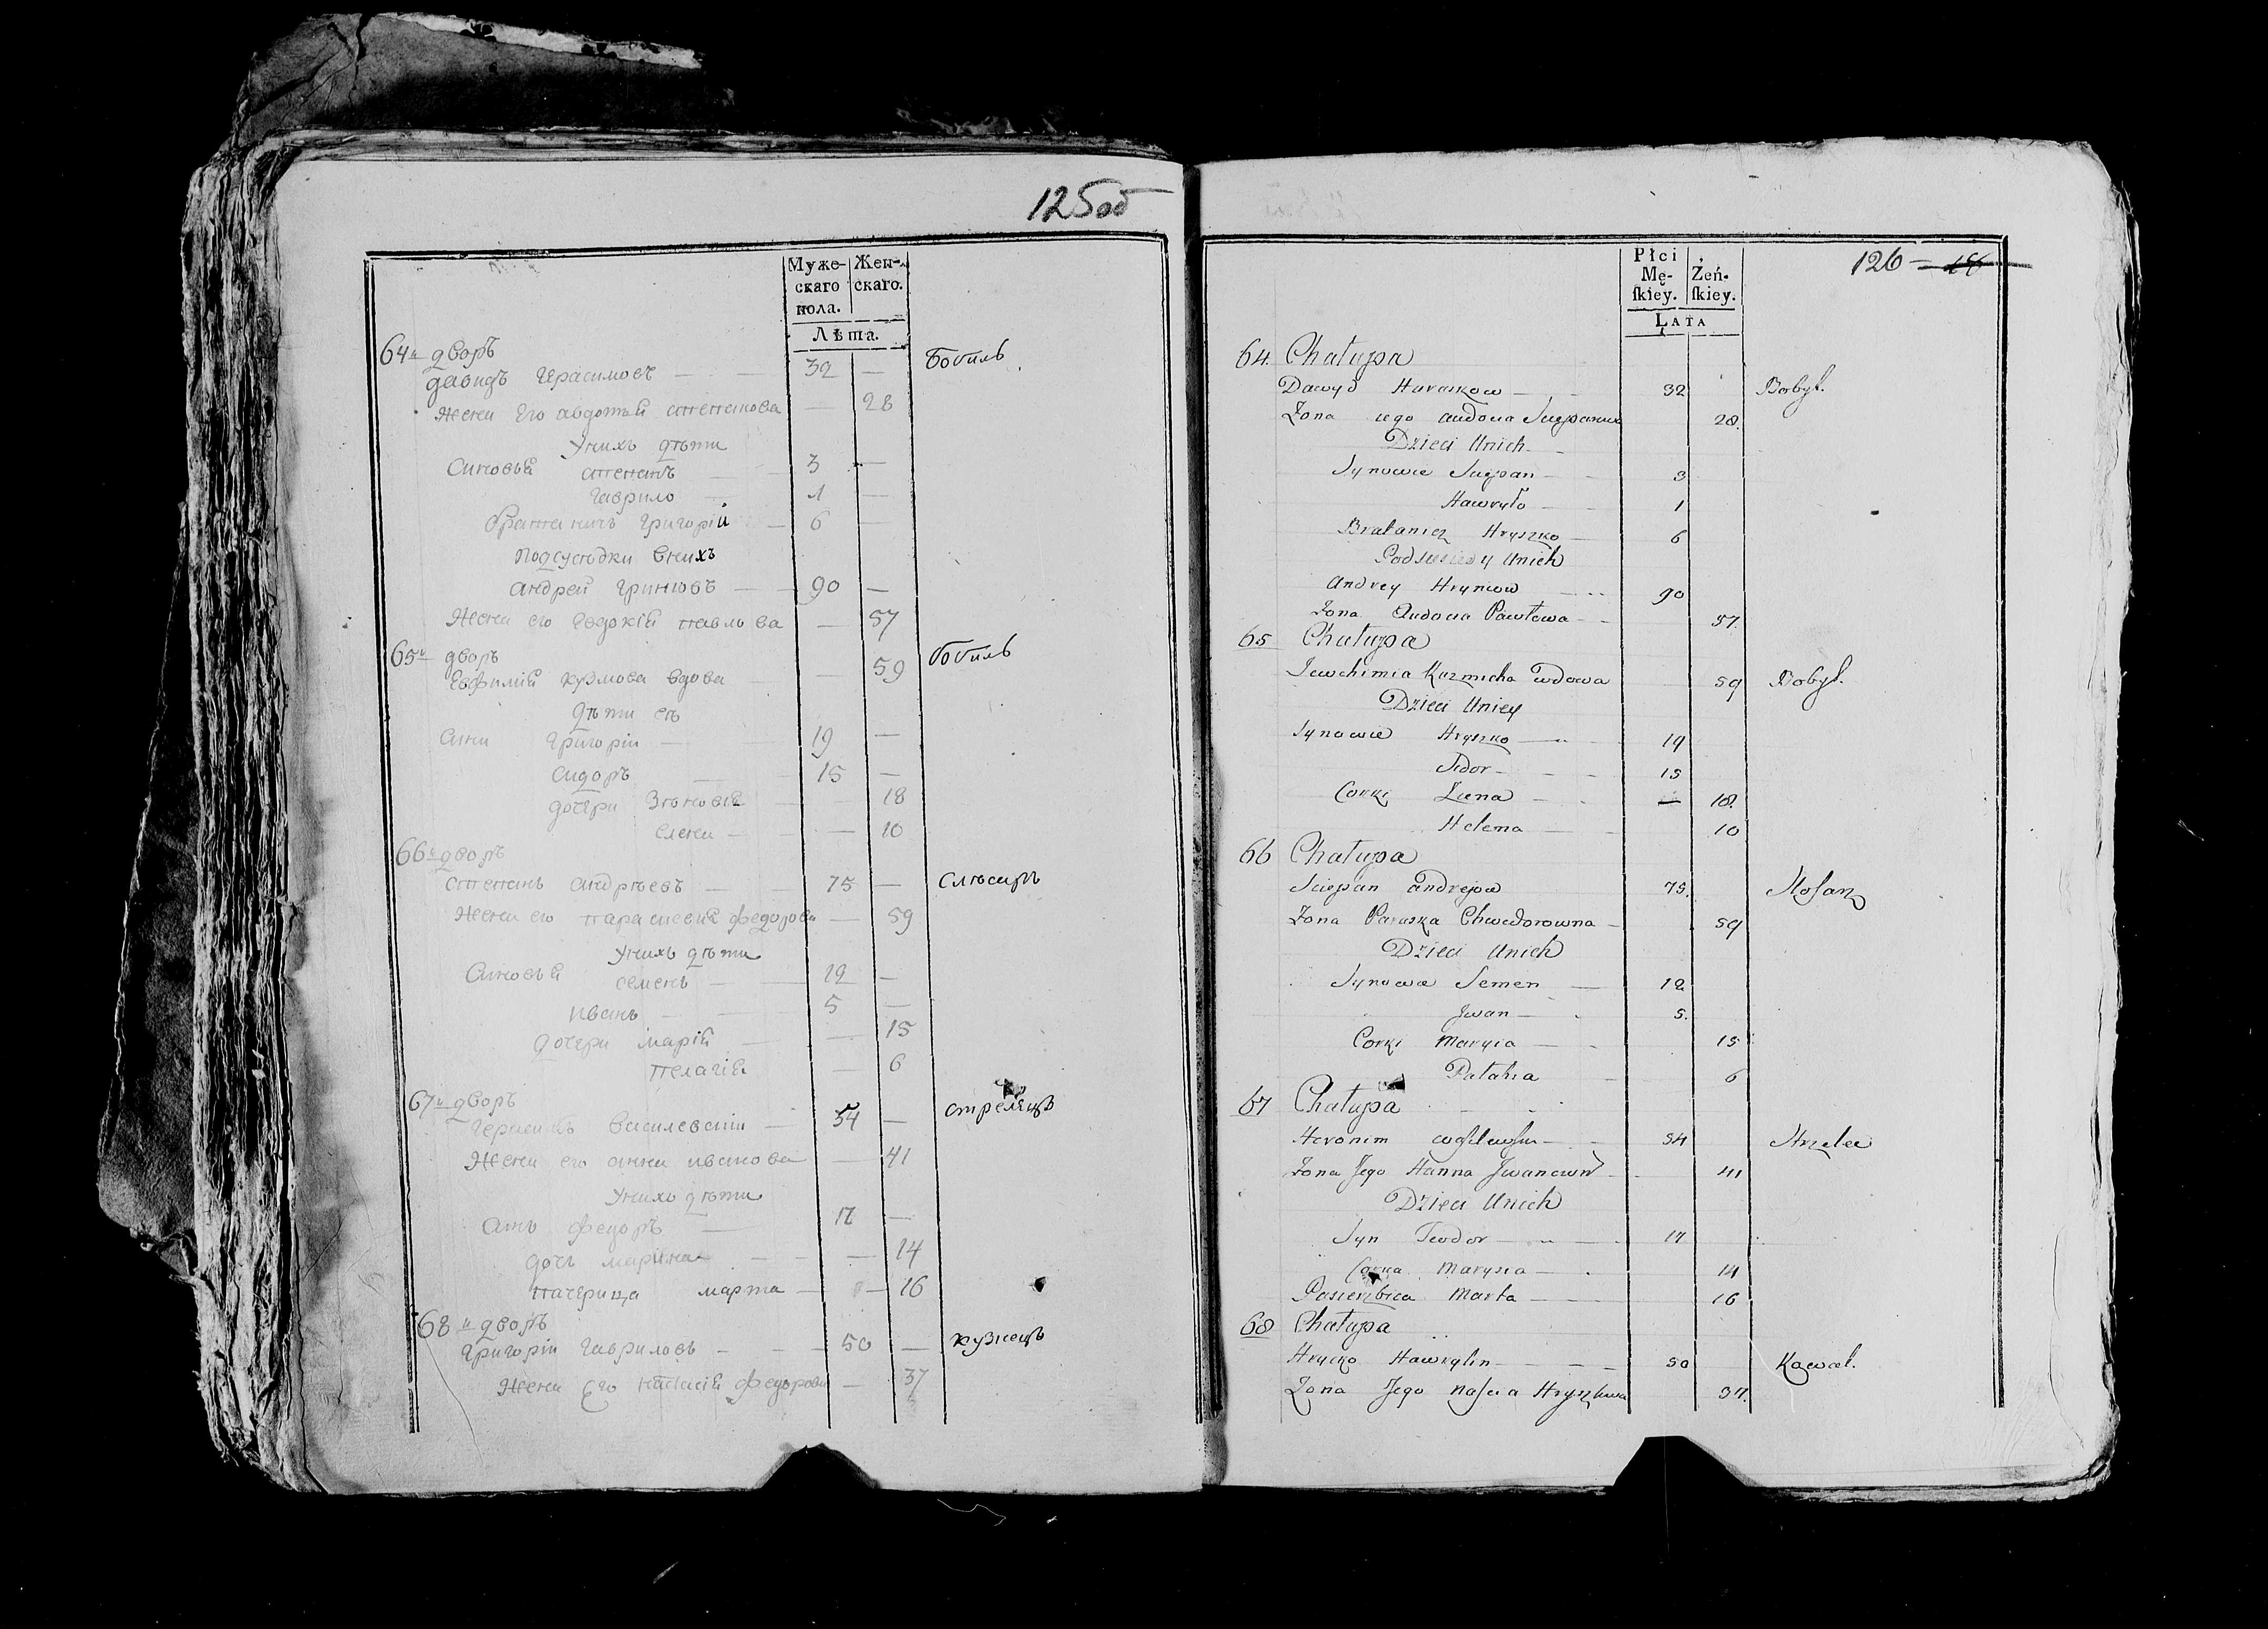 125об
Муже-
скаго
пола.
Жен-
скаго.
Лѣта.
64й дворъ
давидъ Герасимовъ — 32 — бобиль
жена Его авдотья степанова — 28
Унихъ дѣти
Синовья степанъ 3 —
Гаврило — 1 —
братаничъ григорій — 6 —
подсусѣдки внихъ
андрей гриновъ — 90 —
Жена его павлова — 57
65й дворъ бобиль
Евфимія кузмова вдова — 59
дѣти еѣ
сини григорій — 19 —
сидоръ — 15 —
дочери Зѣновія — 18
елена — — 10
66й дворъ
степанъ андрѣевъ — 75 — слѣсаръ
Жена его параскевия федорова — 59
Унихъ дѣти
Синовья семенъ — 12 —
иванъ — 5 —
дочери марія — 15
пелагія — 6
67й дворъ
василевскій — 54 — стрелецъ
Жена его анна иванова — 41
Унихъ дѣти
синъ федоръ — 17 —
дочъ марина — — 14
пачерица марта — — 16
68й дворъ
григорій гавриловъ — 50 — кузнецъ
Жена Его настасія федорова — 37
126 —
Płci
Mę-
ſkiey.
Żeń-
ſkiey.
LATA
64. Chałupa
Dawyd Haraskow — 32 Bobyl.
Zona iego audocia Sciepanowa 28.
Dzieci Unich
Synowie Sciepan — 3
Hawryło — 1
Bratanicz Hryszko — 6
Podsusiedy Unich
Andrey Hryniow 90
Zona Audocia Pawłowa — 57.
65 Chałupa
Jewchimia Kuzmicha wdowa 59 Bobyl.
Dzieci Uniey
Synowie Hryszko — 19
Sidor — 15
Corki Ziena — — 18.
Helena — 10
66 Chałupa
Sciepan andrejow 75. Slosarz
Zona Paraska Chwedorowna — 59
Dzieci Unich
Synowie Semen — 12
Jwan — 5.
Corki Maryia — 15
Pałahia 6
67 Chałupa
Heronim — 54 Strzelec
Zona Jego Hanna Jwanown 41
Dzieci Unich
Syn Teodor — 17
Corka Marysia — 14
Pasierzbica Marta — 16
68 Chałupa
Hrycko Hawrylin — 50 Kowal.
Zona Jego Nascia 37.